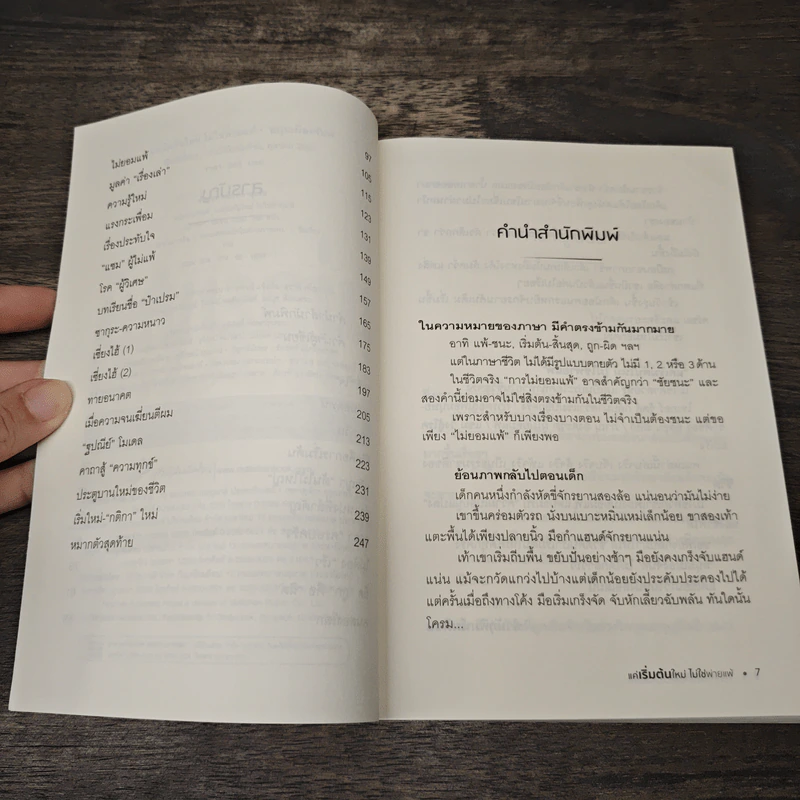 ไม่ยอมแพ้ 97
มูลค่า "เรื่องเล่า" 105
ความรู้ใหม่ 115
แรงกระเพื่อม 123
เรื่องประทับใจ 131
"แซม" ผู้ไม่แพ้ 139
โรค "ผู้วิเศษ" 149
บทเรียนชื่อ "ป๋าเปรม" 157
ซากุระ-ความหนาว 165
เซี่ยงไฮ้ (1) 175
เซี่ยงไฮ้ (2) 183
ทายอนาคต 197
เมื่อความจนเฆี่ยนตีผม 205
"ฐปณีย์" โมเดล 213
คาถาสู้ "ความทุกข์" 223
ประตูบานใหม่ของชีวิต 231
เริ่มใหม่-"กติกา" ใหม่ 239
หมากตัวสุดท้าย 247
คำนำสำนักพิมพ์
ในความหมายของภาษา มีคำตรงข้ามกันมากมาย
อาทิ แพ้-ชนะ, เริ่มต้น-สิ้นสุด, ถูก-ผิด ฯลฯ
แต่ในภาษาชีวิต ไม่ได้มีรูปแบบตายตัว ไม่มี 1, 2 หรือ 3 ด้าน
ในชีวิตจริง "การไม่ยอมแพ้" อาจสำคัญกว่า "ชัยชนะ" และ
สองคำนี้ย่อมอาจไม่ใช่สิ่งตรงข้ามกันในชีวิตจริง
เพราะสำหรับบางเรื่องบางตอน ไม่จำเป็นต้องชนะ แต่ขอ
เพียง "ไม่ยอมแพ้" ก็เพียงพอ
ย้อนภาพกลับไปตอนเด็ก
เด็กคนหนึ่งกำลังหัดขี่จักรยานสองล้อ แน่นอนว่ามันไม่ง่าย
เขาขึ้นคร่อมตัวรถ นั่งบนเบาะหมิ่นเหม่เล็กน้อย ขาสองเท้า
แตะพื้นได้เพียงปลายนิ้ว มือกำแฮนด์จักรยานแน่น
เท้าเขาเริ่มถีบพื้น ขยับปั่นอย่างช้าๆ มือยังคงเกร็งจับแฮนด์
แน่น แม้จะกวัดแกว่งไปบ้างแต่เด็กน้อยยังประดับประคองไปได้
แต่ครั้นเมื่อถึงทางโค้ง มือเริ่มเกร็งจัด จับหักเลี้ยวฉับพลัน ทันใดนั้น
โครม...
แค่เริ่มต้นใหม่ ไม่ใช่พ่ายแพ้ • 7